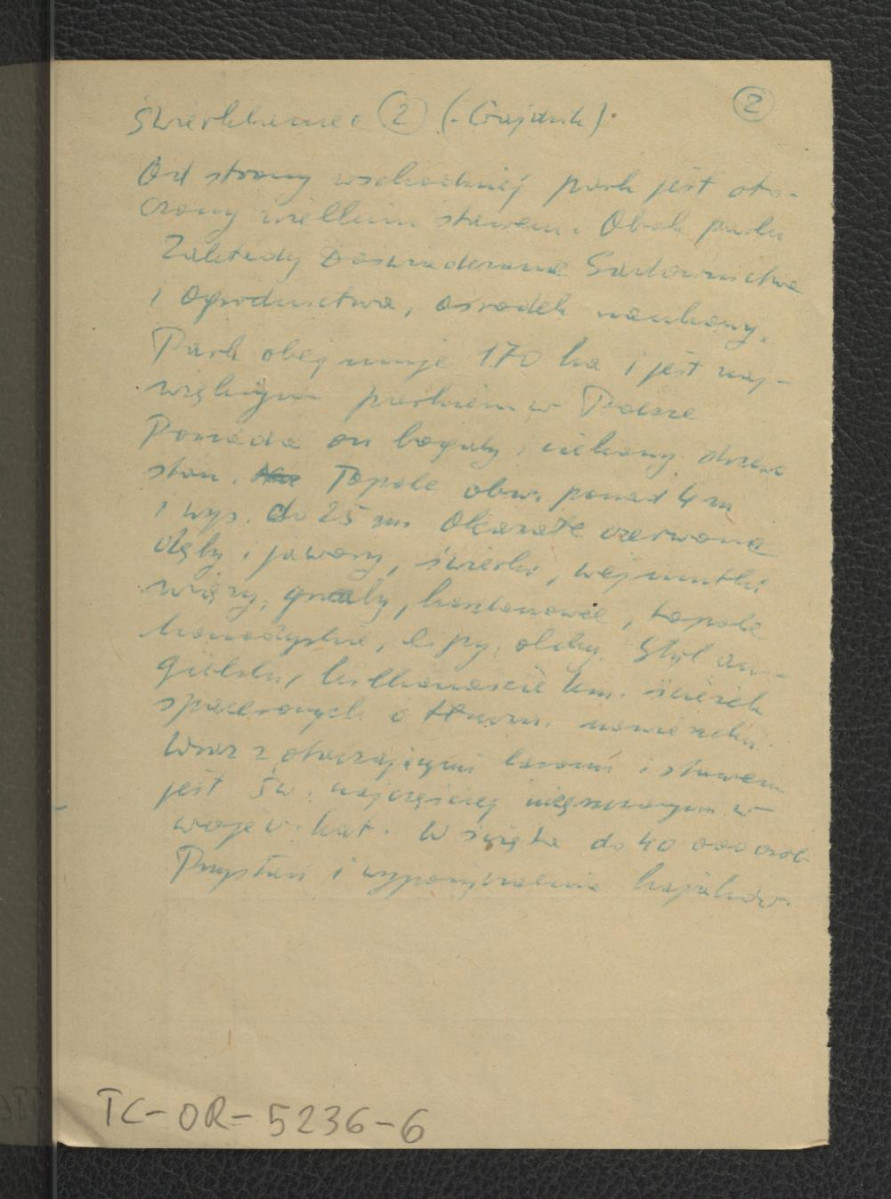 Świerklaniec (2) (-Gajdzik).
2
Od strony wschodniej park jest oto-
czony wielkim stawem. Obok parku
Zakłady Doświadczalne Sadownictwa
i Ogrodnictwa, ośrodek naukowy.
Park obejmuje 170 ha i jest naj-
większym parkiem w Polsce
Posiada on bogaty i ciekawy drzewo
stan. Topole obw. ponad 4 m
i wys. do 25 m. Okazałe czerwone
dęby i jawory, świerki, wejmutki
wiązy, graby, kasztanowce, topole
kanadyjskie, lipy, olchy. Styl an-
gielski, kilkanaście km. ścieżek
spacerowych o nawierzchni
Wraz z otaczającymi lasami i stawem
jest Św. najczęściej w
wojew. kat. W święta do 40 000 osób
Przystań i wypożyczalnia kajaków.
TC-OR-5236-6